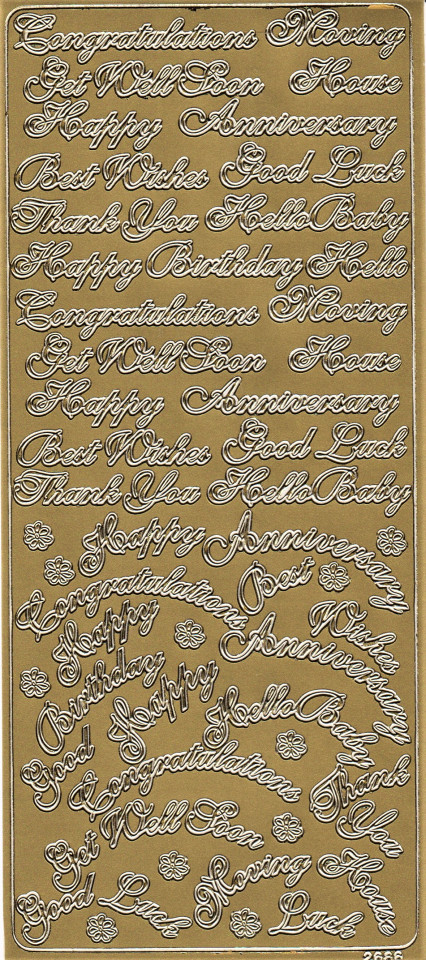 Congratulations Moving
Get Well Soon House
Happy Anniversary
Best Wishes Good Luck
Thank You Hello Baby
Happy Birthday Hello
Congratulations Moving
Get Well Soon House
Happy Anniversary
Best Wishes Good Luck
Thank You Hello Baby
Happy Anniversary
Best Wishes
Congratulations
Happy Birthday
Happy Anniversary
Hello Baby
Good Luck
Congratulations
Thank You
Get Well Soon
Moving House
Good Luck
2666